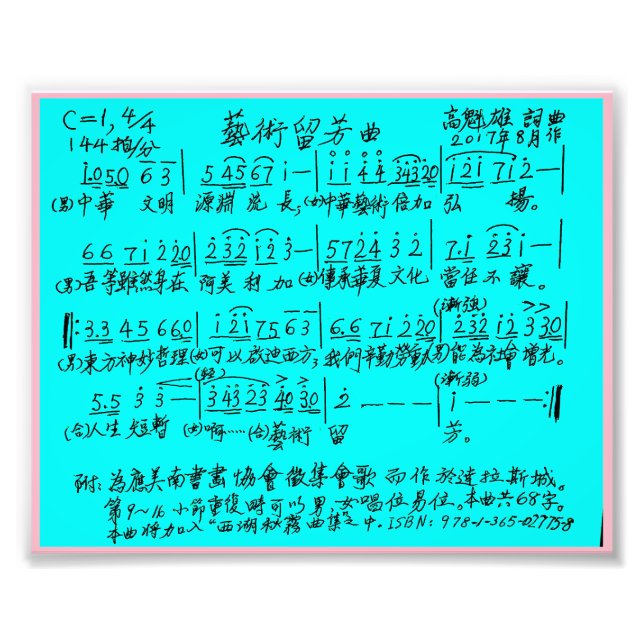 C=1, 4/4
藝術留芳曲
高魁雄 詞曲
144拍/分
2017年8月作
1.0 5.0 6 3 | 5 45 67 i — | i i 4 4 343 20 | i 2i 7i 2 — |
(男)中華 文明 源淵 流 長;(女)中華藝術倍加 弘 揚。
6 6 7 i 2 20 | 2 32 i2 3 — | 5 7 2 4 3 2 | 7.i 2 3 i — |
(男)吾等雖然身在 阿美利加 (女)傳承華夏文化 當任不讓。
(漸強)
‖: 3.3 4 5 6 6.0 | i 2i 75 63 | 6.6 7 i 2 20 | 2 32 i2 3 30 |
(男)東方神妙哲理(女)可以啟迪西方;我們辛勤勞動(男)能為社會增光。
(輕) (漸弱)
5.5 3 3 — | 3 43 23 40 30 | 2 — — — | i — — — :‖
(合)人生 短暫 (女)啊……(合)藝術 留 芳。
附:為應美南書畫協會徵集會歌而作於達拉斯城。
第9~16小節重復時可以男,女唱位易位。本曲共68字。
本曲將加入“西湖秋霧曲集”之中. ISBN: 978-1-365-02775-8